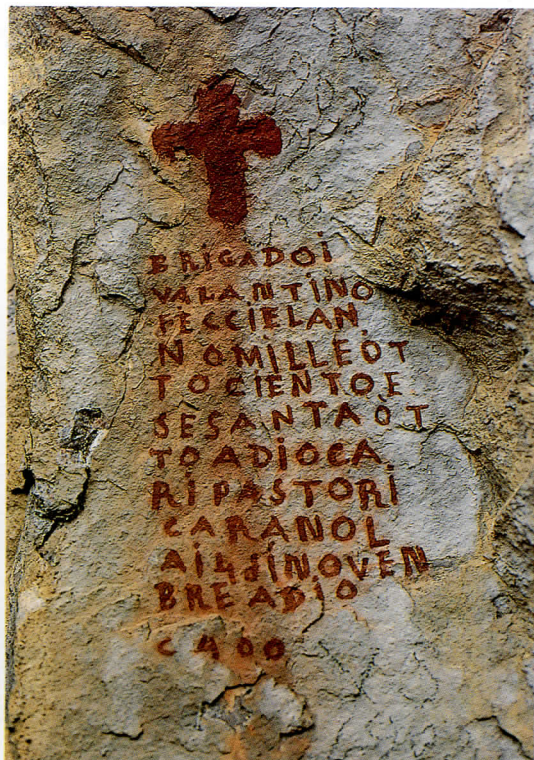 BRIGADOI
VALANTINO
FECCIELAN
NOMILLEOT
TOCIENTOE
SESANTAOT
TOADIOCA
RIPASTORI
CARANOL
AI4diNOVEN
BREADIO
C400